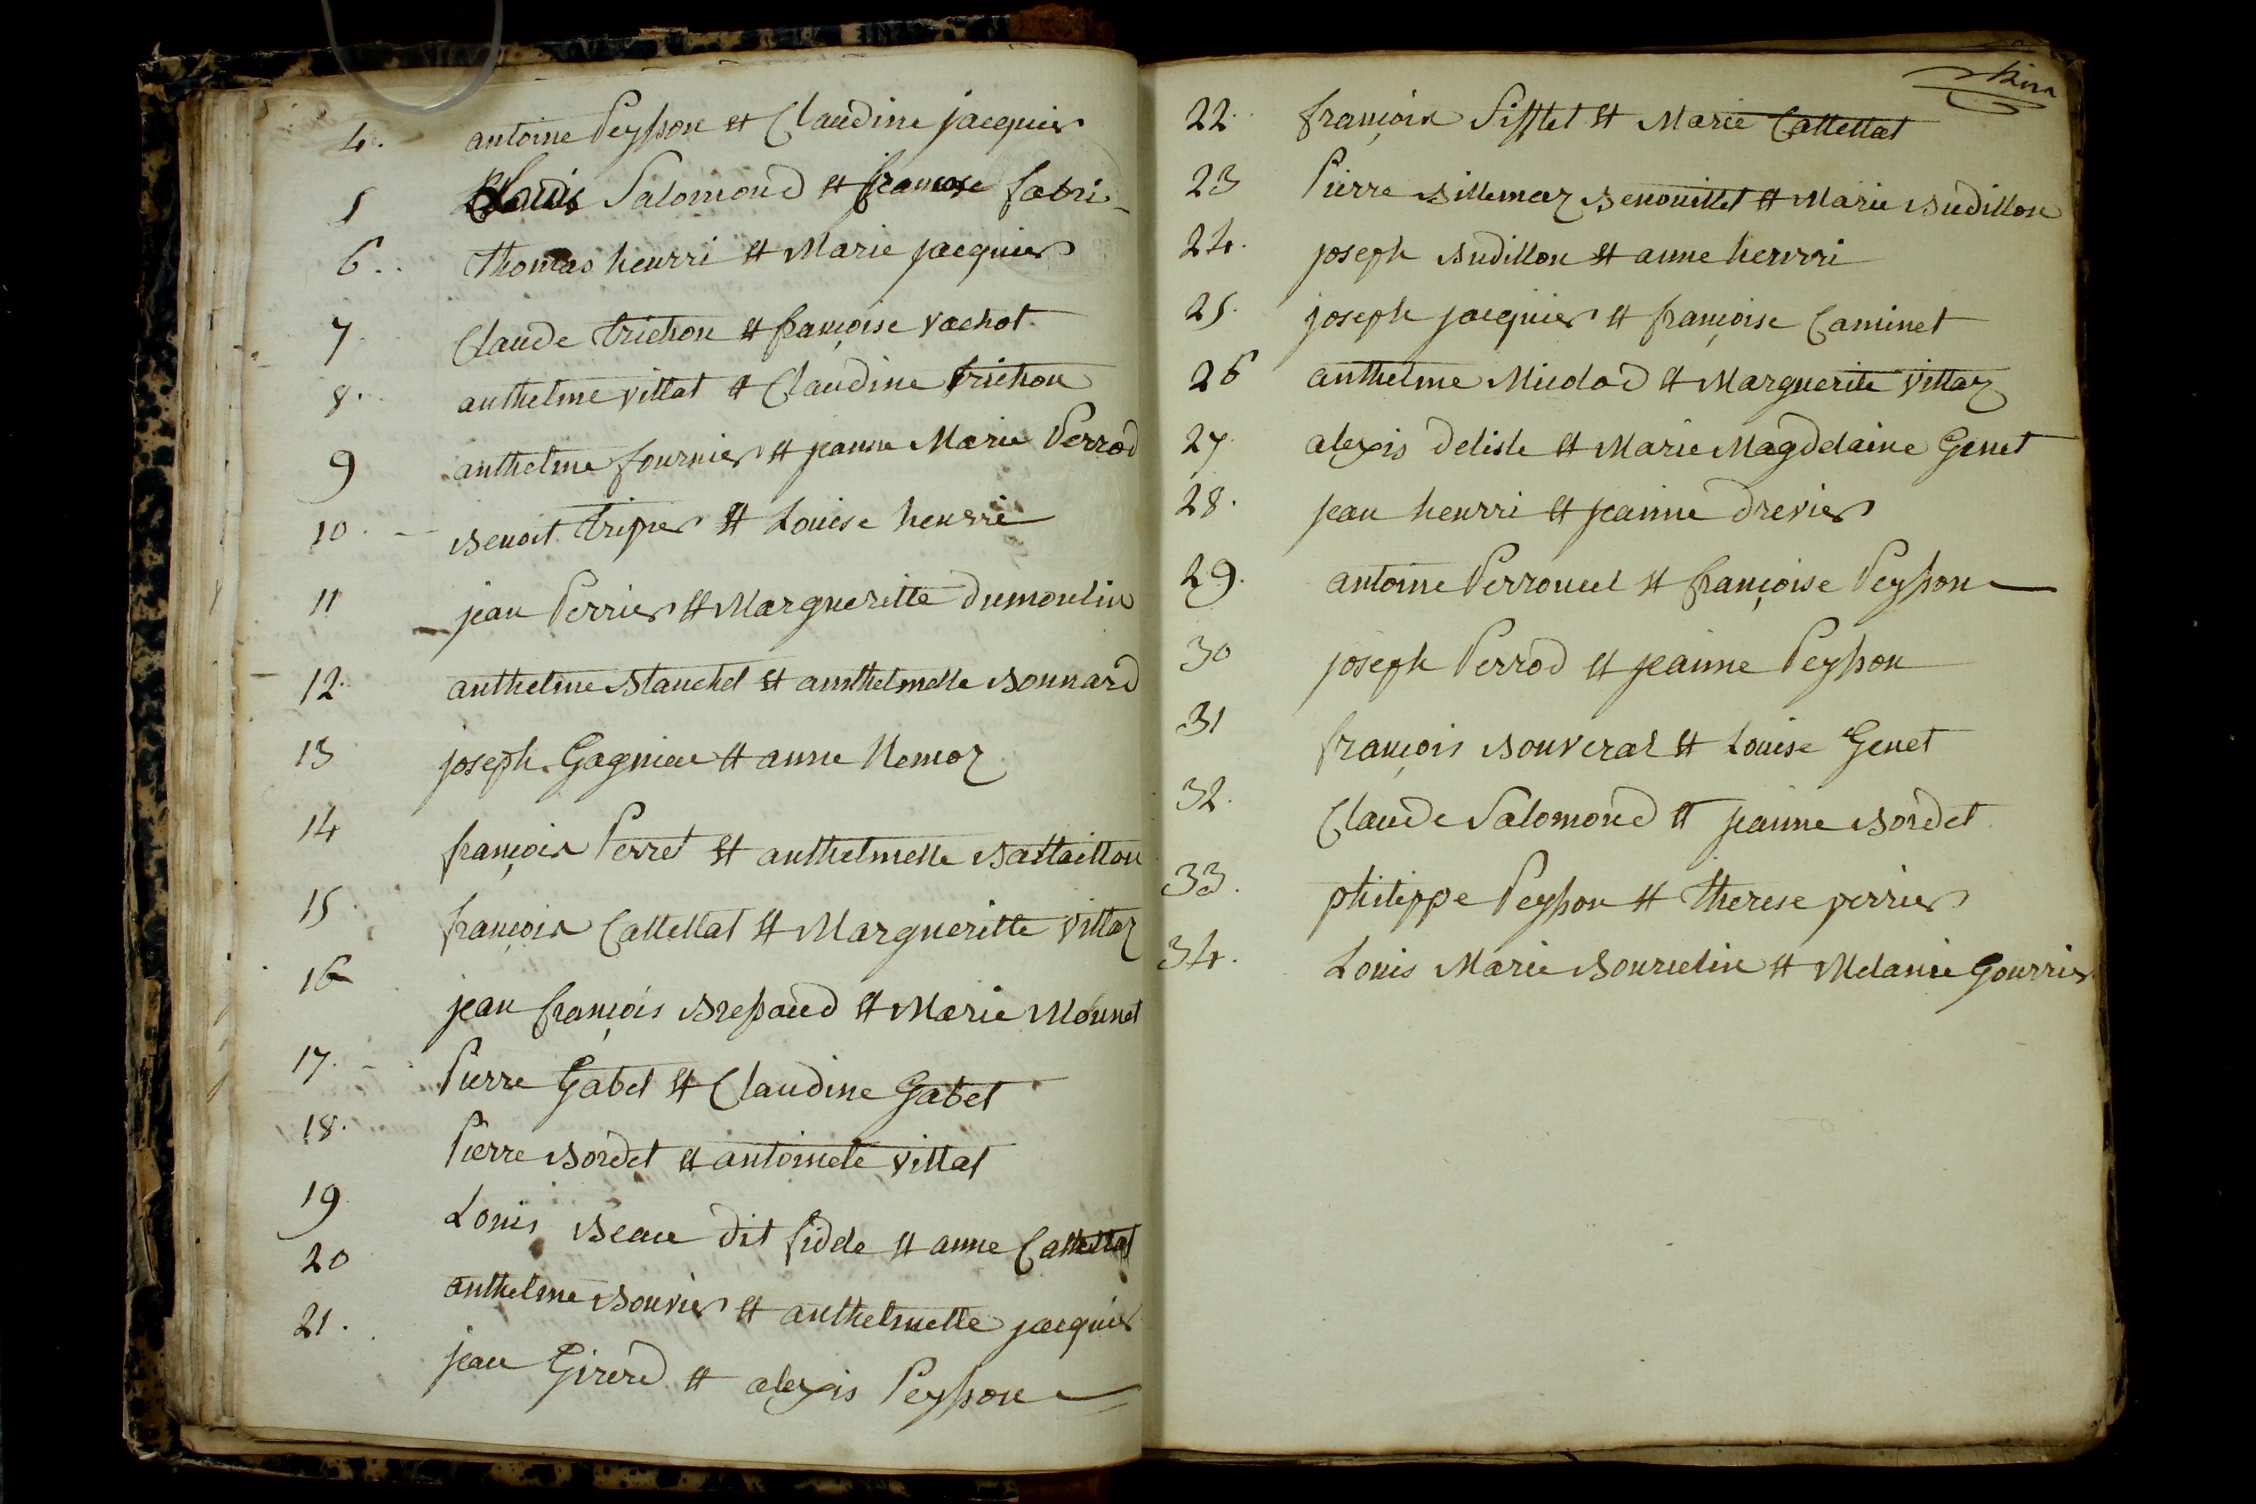 4. antoine Peysson et Claudine jacquier
5 Louis Salomond et francoise fabri
6. thomas heurri et Marie jacquier
7 Claude trichon et françoise vachot
8. anthelme villat et Claudine trichon
9 anthelme fournier et jeanne Marie Perrod
10. Benoit tripier et Louise heurri
11 jean Perrier et Margueritte dumoulin
12. anthelme Blanchet et ansthelmelle Bonnard
13 joseph Gagnieu et anne Nemoz
14 françois Perret et anthelmelle Bastaillon
15 françois Cattellat et Margueritte villaz
16 jean françois Bressaud et Marie Monnet
17. Pierre Gabet et Claudine Gabet
18. Pierre Bordet et antoinete villat
19 Louis Beau dit fidele et anne Cattellat
20 anthelme Bouvier et anthelmette jacquier
21. jean Girerd et alexis Peysson
22. françois Sifflet et Marie Cattellat
23 Pierre Billemaz Benouillet et Marie Budillon
24. joseph Budillon et anne heurri
25. joseph jacquier et françoise Caminet
26 anthelme Miolad et Marguerite villaz
27. alexis Delisle et Marie Magdelaine Genet
28. jean heurri et jeanne Drevier
29. antoine Perroucel et françoise Peysson
30 joseph Perrod et jeanne Peysson
31 françois Bouverat et Louise Genet
32. Claude Salomond et jeanne Bordet
33. philippe Peysson et therese perrier
34. Louis Marie Bourcelin et Melanie Gourrier